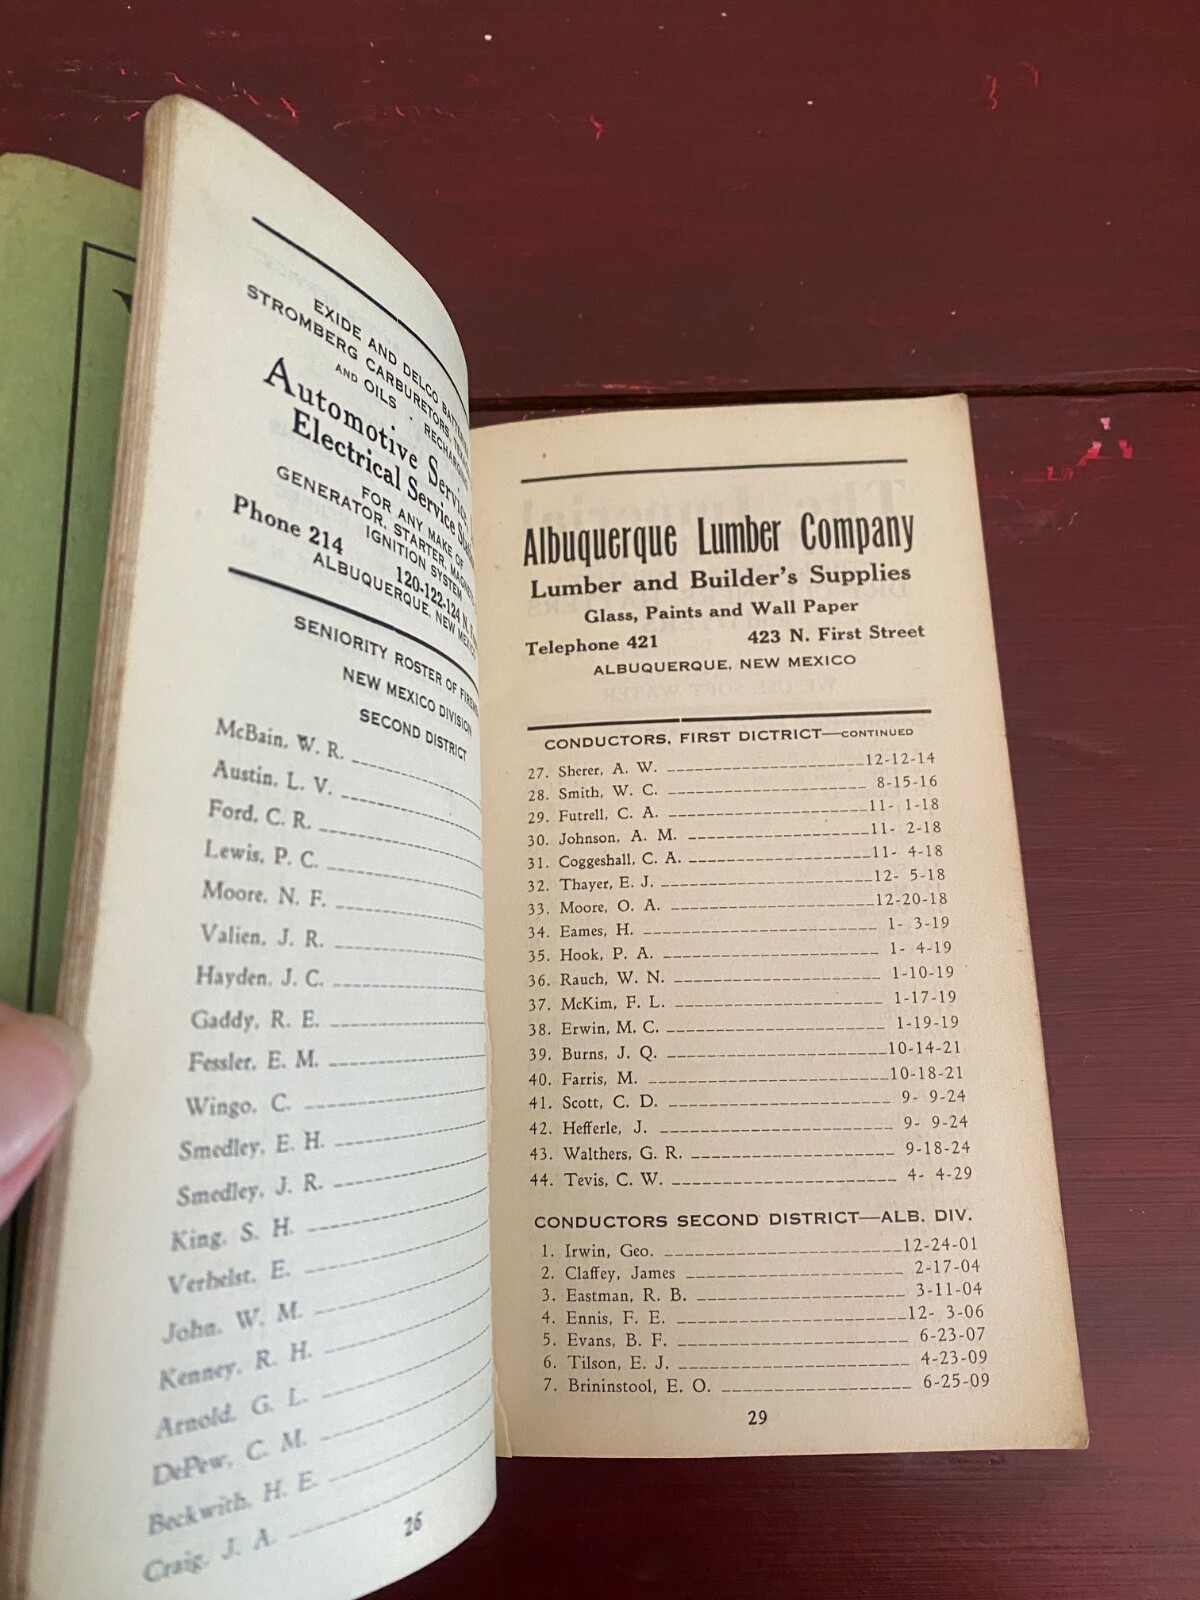 EXIDE AND DELCO
STROMBERG CARBURETORS,
AND OILS · RECHARGING
Automotive Service,
Electrical Service
FOR ANY MAKE OF
GENERATOR, STARTER,
IGNITION SYSTEM
Phone 214 120-122-124 N.
ALBUQUERQUE, NEW MEXICO
SENIORITY ROSTER OF
NEW MEXICO DIVISION
SECOND DISTRICT
McBain, W. R.
Austin, L. V.
Ford, C. R.
Lewis, P. C.
Moore, N. F.
Valien, J. R.
Hayden, J. C.
Gaddy, R. E.
Fessler, E. M.
Wingo, C.
Smedley, E. H.
Smedley, J. R.
King, S. H.
Verhelst, E.
John, W. M.
Kenney, R. H.
Arnold, G. L.
DePew, C. M.
Beckwith, H. E.
Craig, J. A.
26
Albuquerque Lumber Company
Lumber and Builder's Supplies
Glass, Paints and Wall Paper
Telephone 421 423 N. First Street
ALBUQUERQUE, NEW MEXICO
CONDUCTORS, FIRST DICTRICT—CONTINUED
27. Sherer, A. W. 12-12-14
28. Smith, W. C. 8-15-16
29. Futrell, C. A. 11- 1-18
30. Johnson, A. M. 11- 2-18
31. Coggeshall, C. A. 11- 4-18
32. Thayer, E. J. 12- 5-18
33. Moore, O. A. 12-20-18
34. Eames, H. 1- 3-19
35. Hook, P. A. 1- 4-19
36. Rauch, W. N. 1-10-19
37. McKim, F. L. 1-17-19
38. Erwin, M. C. 1-19-19
39. Burns, J. Q. 10-14-21
40. Farris, M. 10-18-21
41. Scott, C. D. 9- 9-24
42. Hefferle, J. 9- 9-24
43. Walthers, G. R. 9-18-24
44. Tevis, C. W. 4- 4-29
CONDUCTORS SECOND DISTRICT—ALB. DIV.
1. Irwin, Geo. 12-24-01
2. Claffey, James 2-17-04
3. Eastman, R. B. 3-11-04
4. Ennis, F. E. 12- 3-06
5. Evans, B. F. 6-23-07
6. Tilson, E. J. 4-23-09
7. Brininstool, E. O. 6-25-09
29